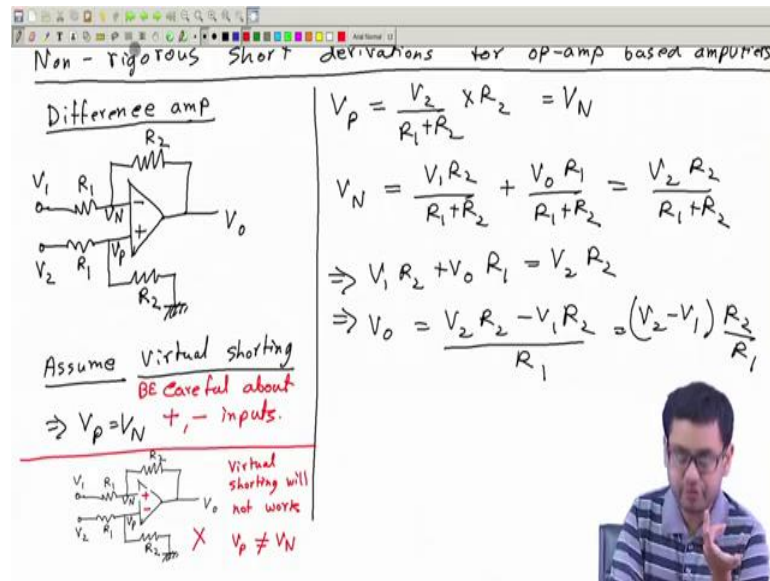 Non-rigorous short derivations for op-amp based amplifiers
Difference amp
R2
V1 R1
VN -
+ V0
VP
V2 R1
R2
Assume Virtual shorting
BE Careful about
+, - inputs.
⇒ VP = VN
R2
V1 R1
VN +
- V0
VP
V2 R1
R2
X
Virtual
shorting will
not works
VP ≠ VN
VP = V2/(R1+R2) × R2 = VN
VN = V1R2/(R1+R2) + V0R1/(R1+R2) = V2R2/(R1+R2)
⇒ V1R2 + V0R1 = V2R2
⇒ V0 = (V2R2 - V1R2)/R1 = (V2-V1) R2/R1